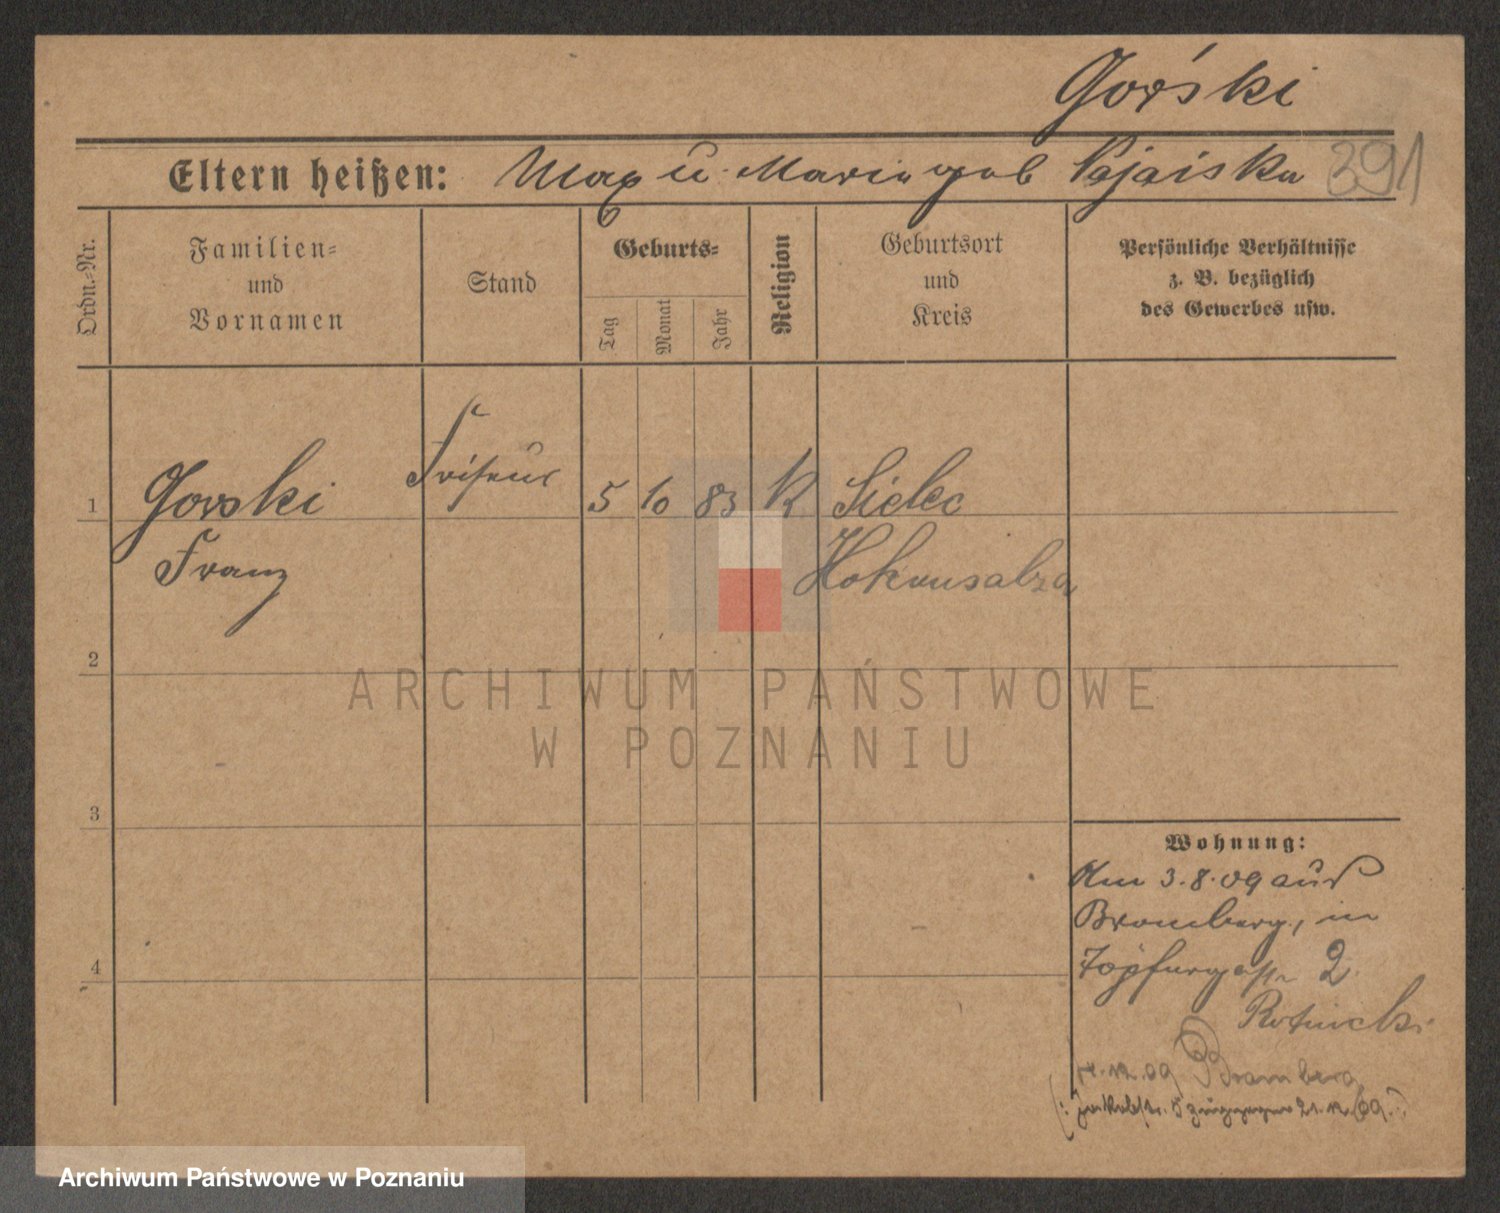 Gorśki
Eltern heißen: Max u. Marie geb
391
Ordn.=Nr.
Familien=
und
Vornamen
Stand
Geburts=
Tag
Monat
Jahr
Religion
Geburtsort
und
Kreis
Persönliche Verhältnisse
z. B. bezüglich
des Gewerbes usw.
1
Gorski
Friseur
5
10
83
K
Sielec
Franz
Hohensalza
2
ARCHIWUM PAŃSTWOWE
W POZNANIU
3
Wohnung:
Am 3.8.09 aus
Bromberg, in
2
4
12.09 Bromberg
21.12.09
Archiwum Państwowe w Poznaniu